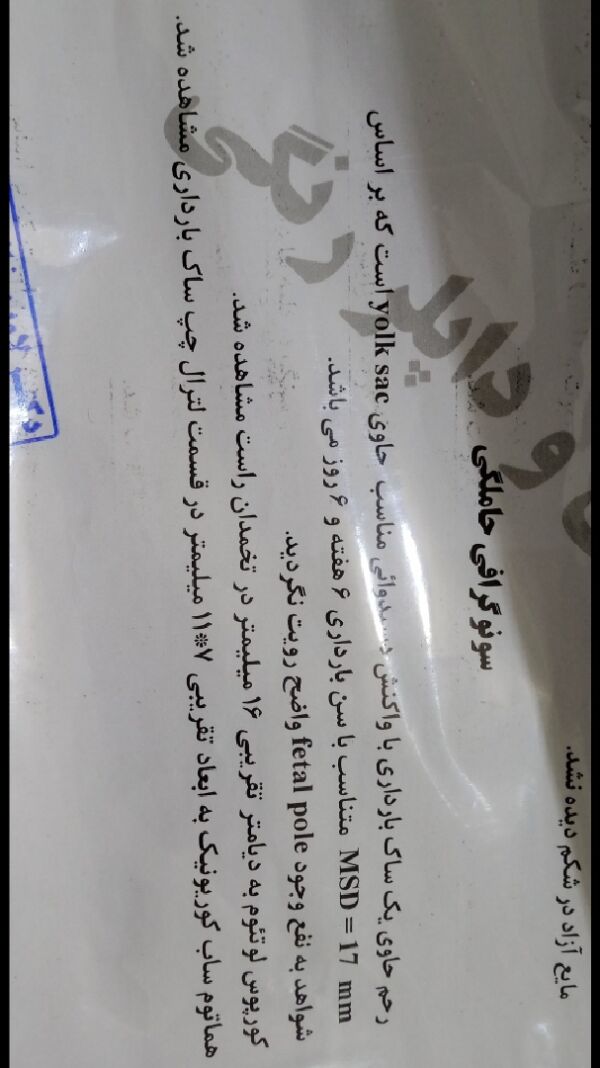 مایع آزاد در شکم دیده نشد.
سونوگرافی حاملگی
رحم حاوی یک ساک بارداری با واکنش دسیدوائی مناسب حاوی yolk sac است که بر اساس
MSD = 17 mm متناسب با سن بارداری ۶ هفته و ۶ روز می باشد.
شواهد به نفع وجود fetal pole واضح رویت نگردید.
کورپوس لوتئوم به دیامتر تقریبی ۱۶ میلیمتر در تخمدان راست مشاهده شد.
هماتوم ساب کوریونیک به ابعاد تقریبی ۷*۱۱ میلیمتر در قسمت لترال چپ ساک بارداری مشاهده شد.
و داپلر رنگی